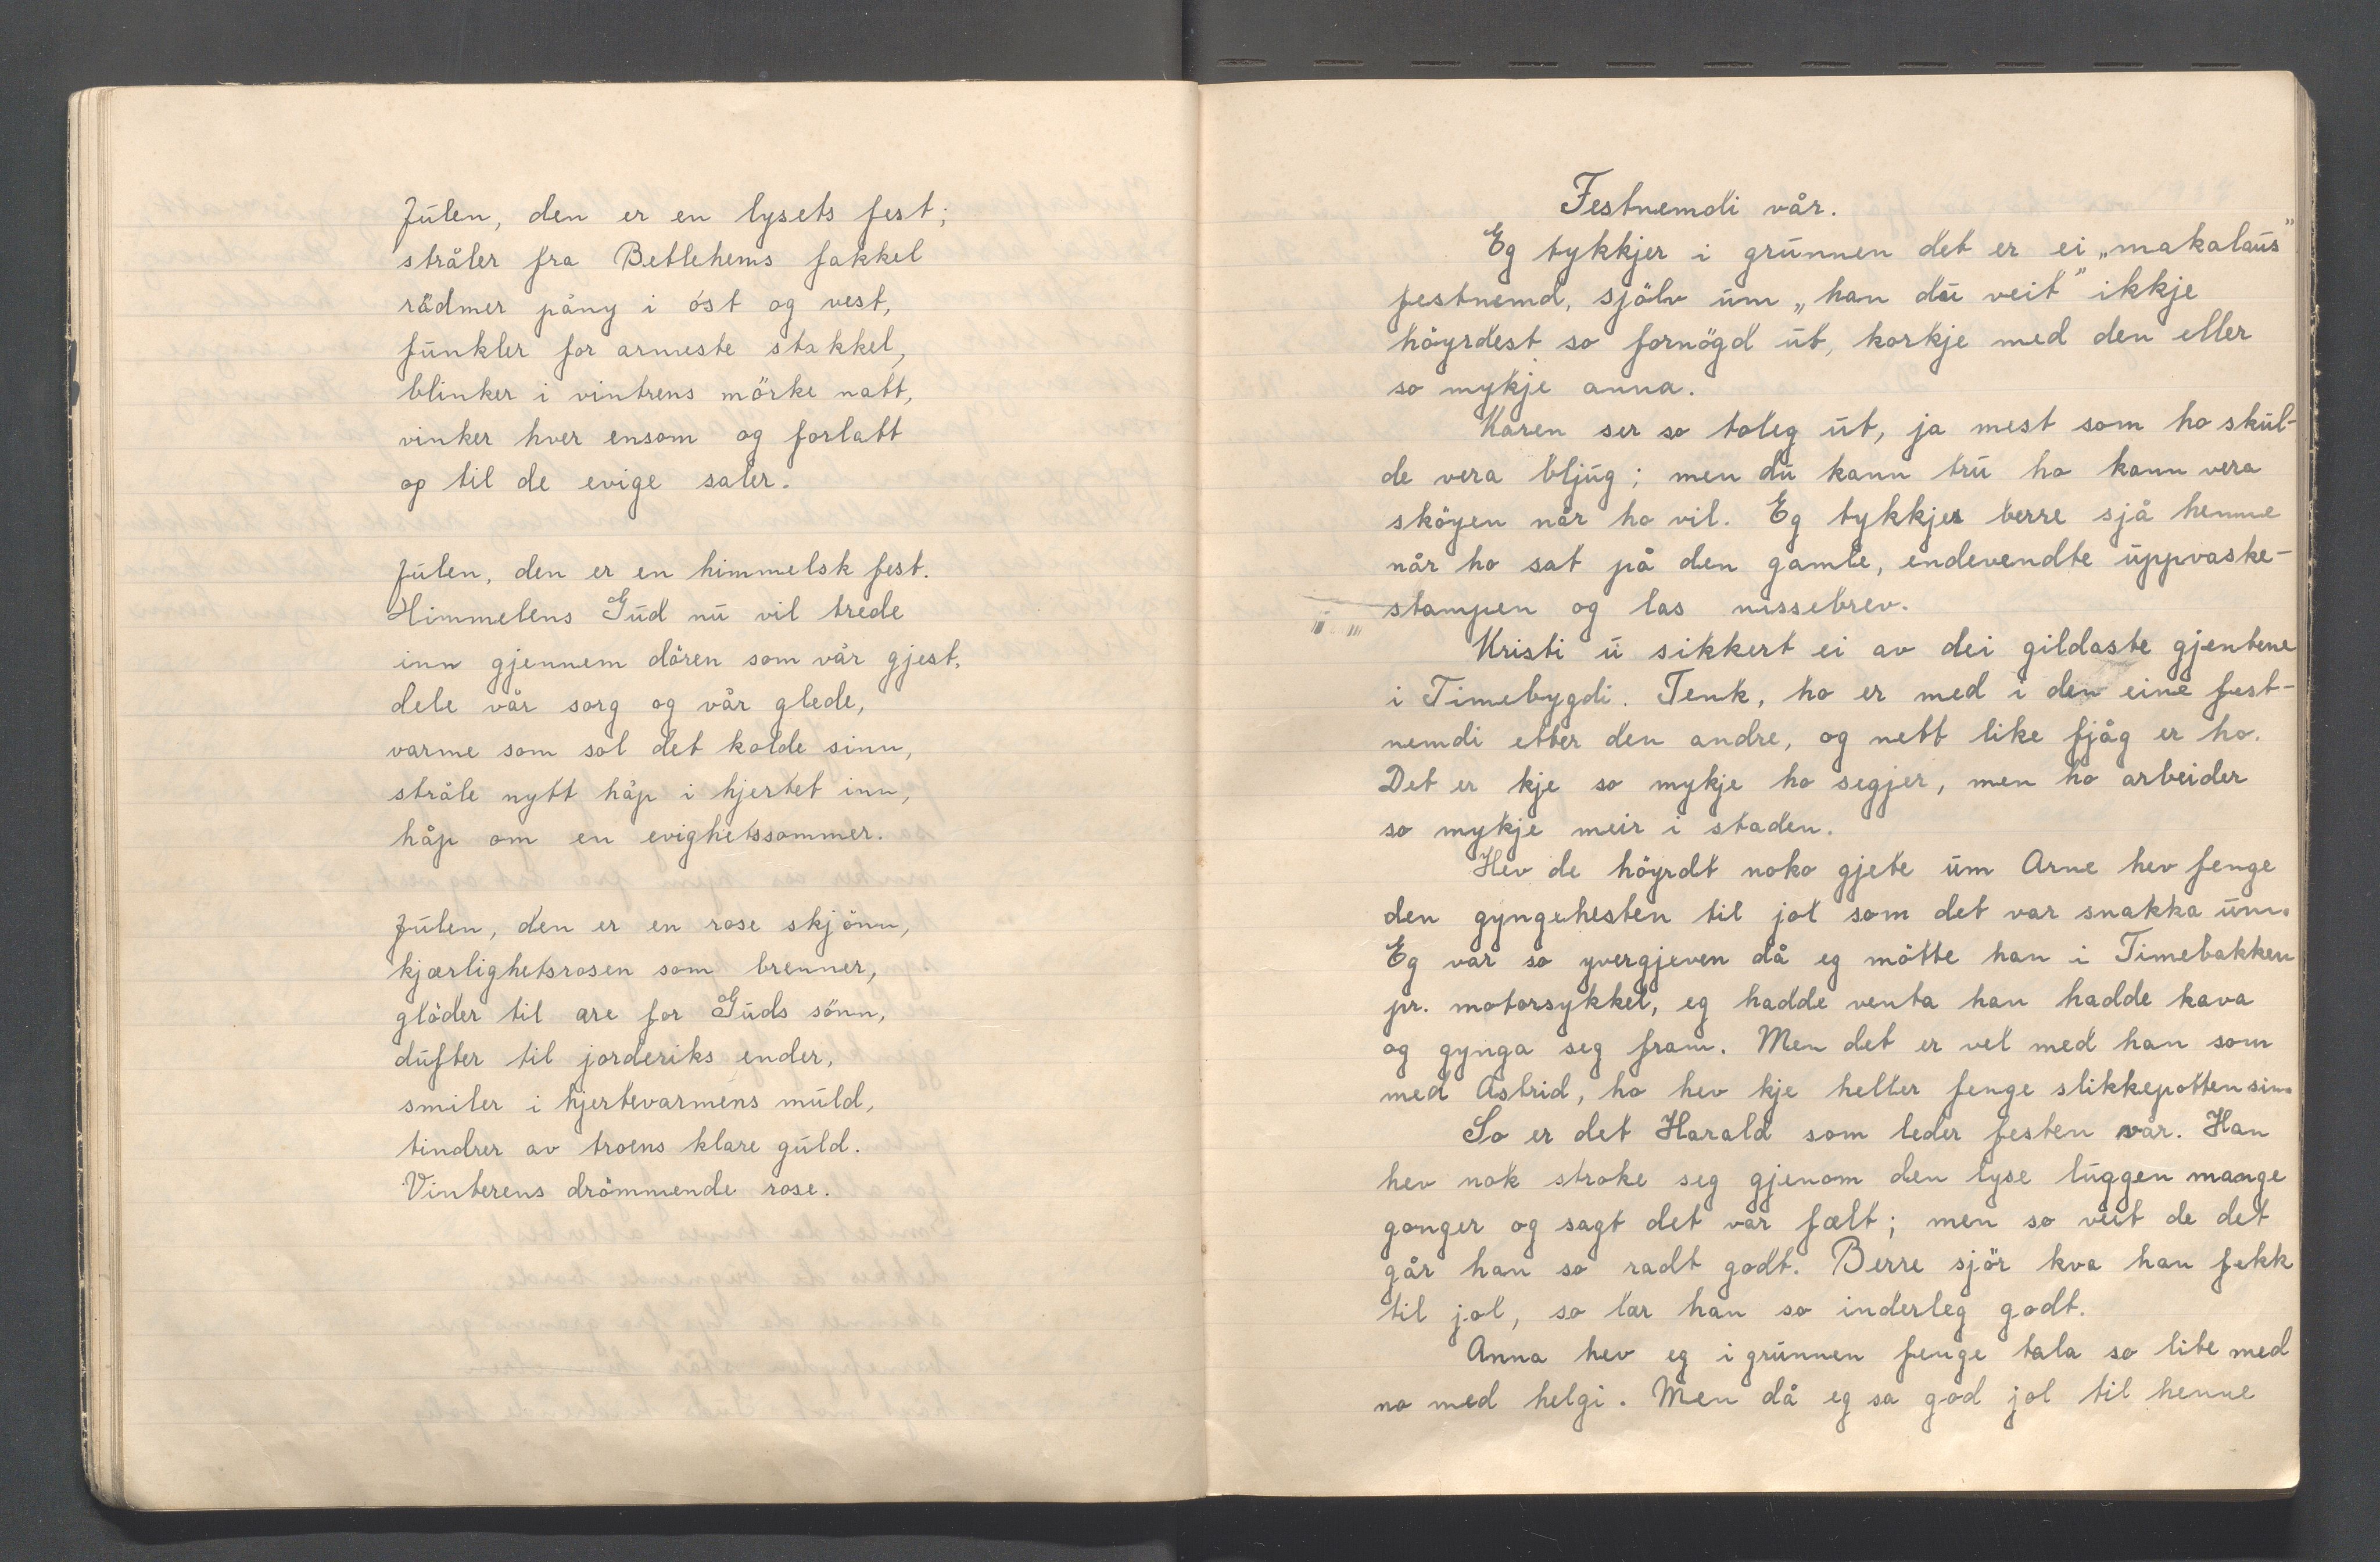 Julen, den er en lysets fest;
stråler fra Betlehems fakkel
rödmer påny i öst og vest,
funkler for armeste stakkel,
blinker i vintrens mörke natt,
vinker hver ensom og forlatt
op til de evige saler.
Julen, den er en himmelsk fest.
Himmelens Gud nu vil trede
inn gjennem dören som vår gjest,
dele vår sorg og vår glede,
varme som sol det kolde sinn,
stråle nytt håp i hjertet inn,
håp om en evighetssommer.
Julen, den er en rose skjönn,
kjærlighetsrosen som brenner,
glöder til ære for Guds sönn,
dufter til jorderiks ender,
smiler i hjertevarmens muld,
tindrer av troens klare guld.
Vinterens drömmende rose.
Festnemdi vår.
Eg tykkjer i grunnen det er ei „makalaus"
festnemd, sjölv um „han du veit" ikkje
höyrdest so fornögd ut, korkje med den eller
so mykje anna.
Karen ser so toleg ut, ja mest som ho skul-
de vera bljug; men du kann tru ho kann vera
sköyen når ho vil. Eg tykkjer berre sjå henne
når ho sat på den gamle, endevendte uppvaske-
stampen og las nissebrev.
Kristi u sikkert ei av dei gildaste gjentene
i Timebygdi. Tenk, ho er med i den eine fest-
nemdi etter den andre, og nett like fjåg er ho.
Det er kje so mykje ho segjer, men ho arbeider
so mykje meir i staden.
Hev de höyrdt noko gjete um Arne hev fenge
den gyngehesten til jol som det var snakka um.
Eg var so yvergjeven då eg mötte han i Timebakken
pr. motorsykkel, eg hadde venta han hadde kava
og gynga seg fram. Men det er vel med han som
med Astrid, ho hev kje heller fenge slikkepotten sin.
So er det Harald som leder festen vår. Han
hev nok stroke seg gjenom den lyse luggen mange
gonger og sagt det var fælt; men so veit de det
går han so radt godt. Berre sjör kva han fekk
til jol, so lær han so inderleg godt.
Anna hev eg i grunnen fenge tala so lite med
no med helgi. Men då eg sa god jol til henne